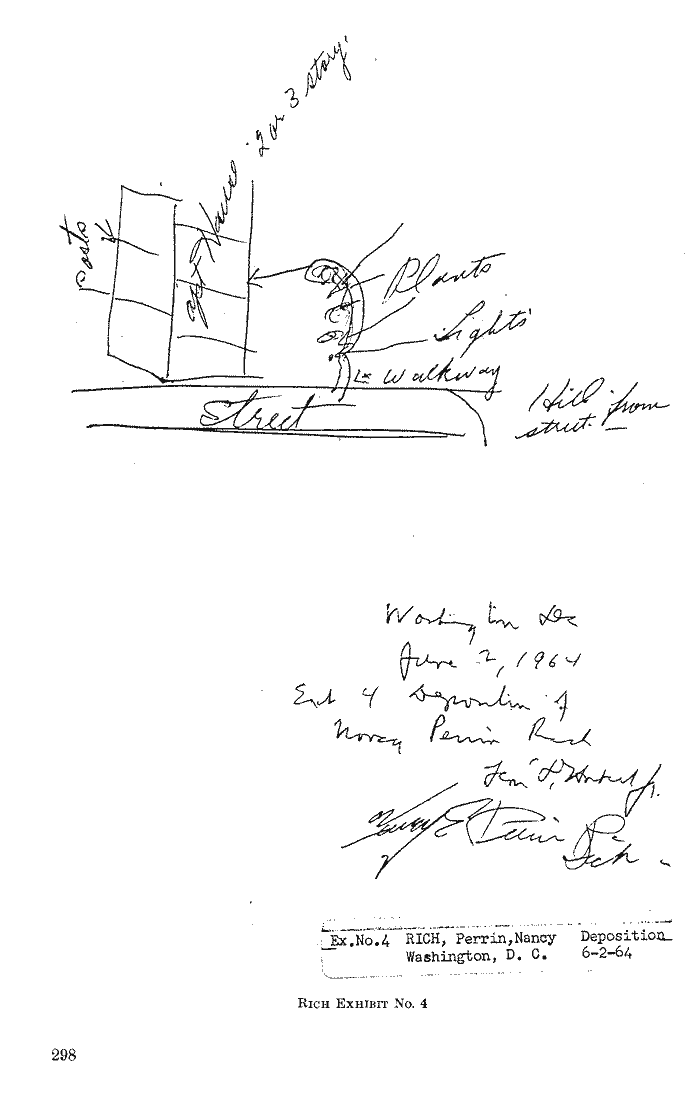 2 or 3 story.
House
Posts
Plants
Lights
walkway
Street
Hill from
street.
Washington DC
June 2, 1964
Exh 4 Deposition of
Nancy Perrin Rich
Nancy E Perrin Rich
Ex.No.4 RICH, Perrin,Nancy Deposition
Washington, D. C. 6-2-64
RICH EXHIBIT No. 4
298